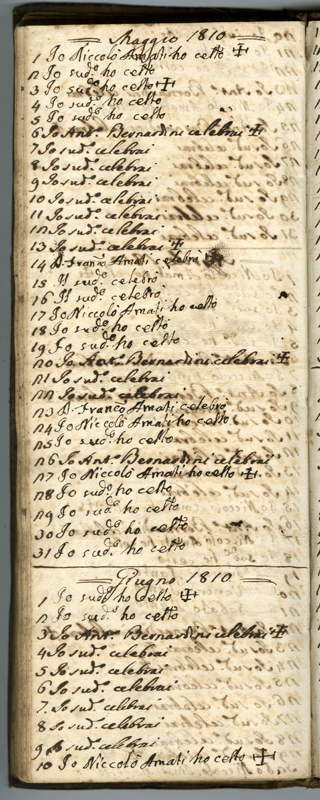 Maggio 1810
1 Io Niccolò Amati ho cełto ☩
2 Io sud.º ho cełto
3 Io sud.º ho cełto ☩
4 Io sud.º ho cełto
5 Io sud.º ho cełto
6 Io Ant.º Bernardini celebrai ☩
7 Io sud.º celebrai
8 Io sud.º celebrai
9 Io sud.º celebrai
10 Io sud.º celebrai
11 Io sud.º celebrai
12 Io sud.º celebrai
13 Io sud.º celebrai ☩
14 D. Franco Amati celebrò ☩
15 Il sud.º celebrò
16 Il sud.º celebrò
17 Io Niccolò Amati ho cełto
18 Io sud.º ho cełto
19 Io sud.º ho cełto
20 Io Ant.º Bernardini celebrai ☩
21 Io sud.º celebrai
22 Io sud.º celebrai
23 D. Franco Amati celebrò
24 Io Niccolò Amati ho cełto
25 Io sud.º ho cełto
26 Io Ant.º Bernardini celebrai
27 Io Niccolò Amati ho cełto ☩
28 Io sud.º ho cełto
29 Io sud.º ho cełto
30 Io sud.º ho cełto
31 Io sud.º ho cełto
Giugno 1810
1 Io sud.º ho cełto ☩
2 Io sud.º ho cełto
3 Io Ant.º Bernardini celebrai ☩
4 Io sud.º celebrai
5 Io sud.º celebrai
6 Io sud.º celebrai
7 Io sud.º celebrai
8 Io sud.º celebrai
9 Io sud.º celebrai
10 Io Niccolò Amati ho cełto ☩